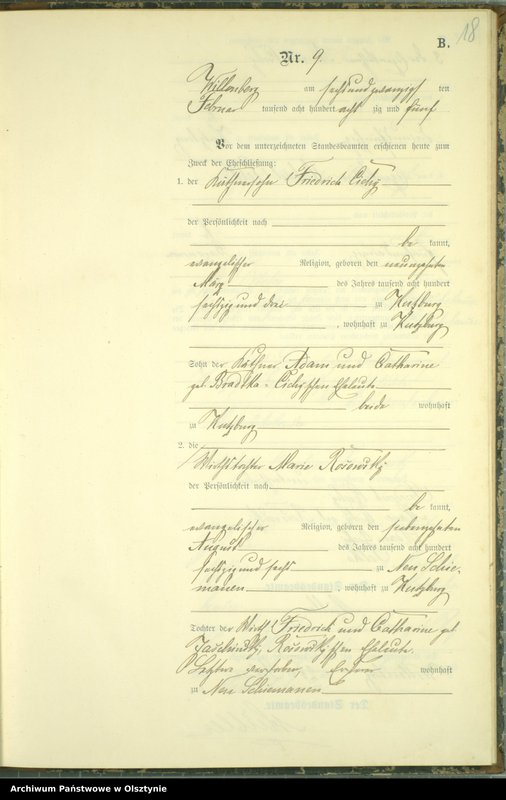 18
B.
Nr. 9.
Willenberg am sechsundzwanzigsten
Februar tausend acht hundert achtzig und fünf
Vor dem unterzeichneten Standesbeamten erschienen heute zum
Zweck der Eheschließung:
1. der Käthnersohn Friedrich Cichy
der Persönlichkeit nach
be kannt,
evangelischer Religion, geboren den neunzehnten
März des Jahres tausend acht hundert
sechszig und drei zu Kutzburg
, wohnhaft zu Kutzburg
Sohn der Käthner Adam und Catharine
geb. Cichy'schen Eheleute
beide wohnhaft
zu Kutzburg
2. die
Wirthstochter Marie
der Persönlichkeit nach
be kannt,
evangelischer Religion, geboren den siebenzehnten
August des Jahres tausend acht hundert
sechszig und sechs zu Neu Schie-
manen , wohnhaft zu Kutzburg
Tochter der Wirth Friedrich und Catharine geb.
Eheleute.
Letztere verstorben, Ersterer wohnhaft
zu Neu Schiemanen
Archiwum Państwowe w Olsztynie